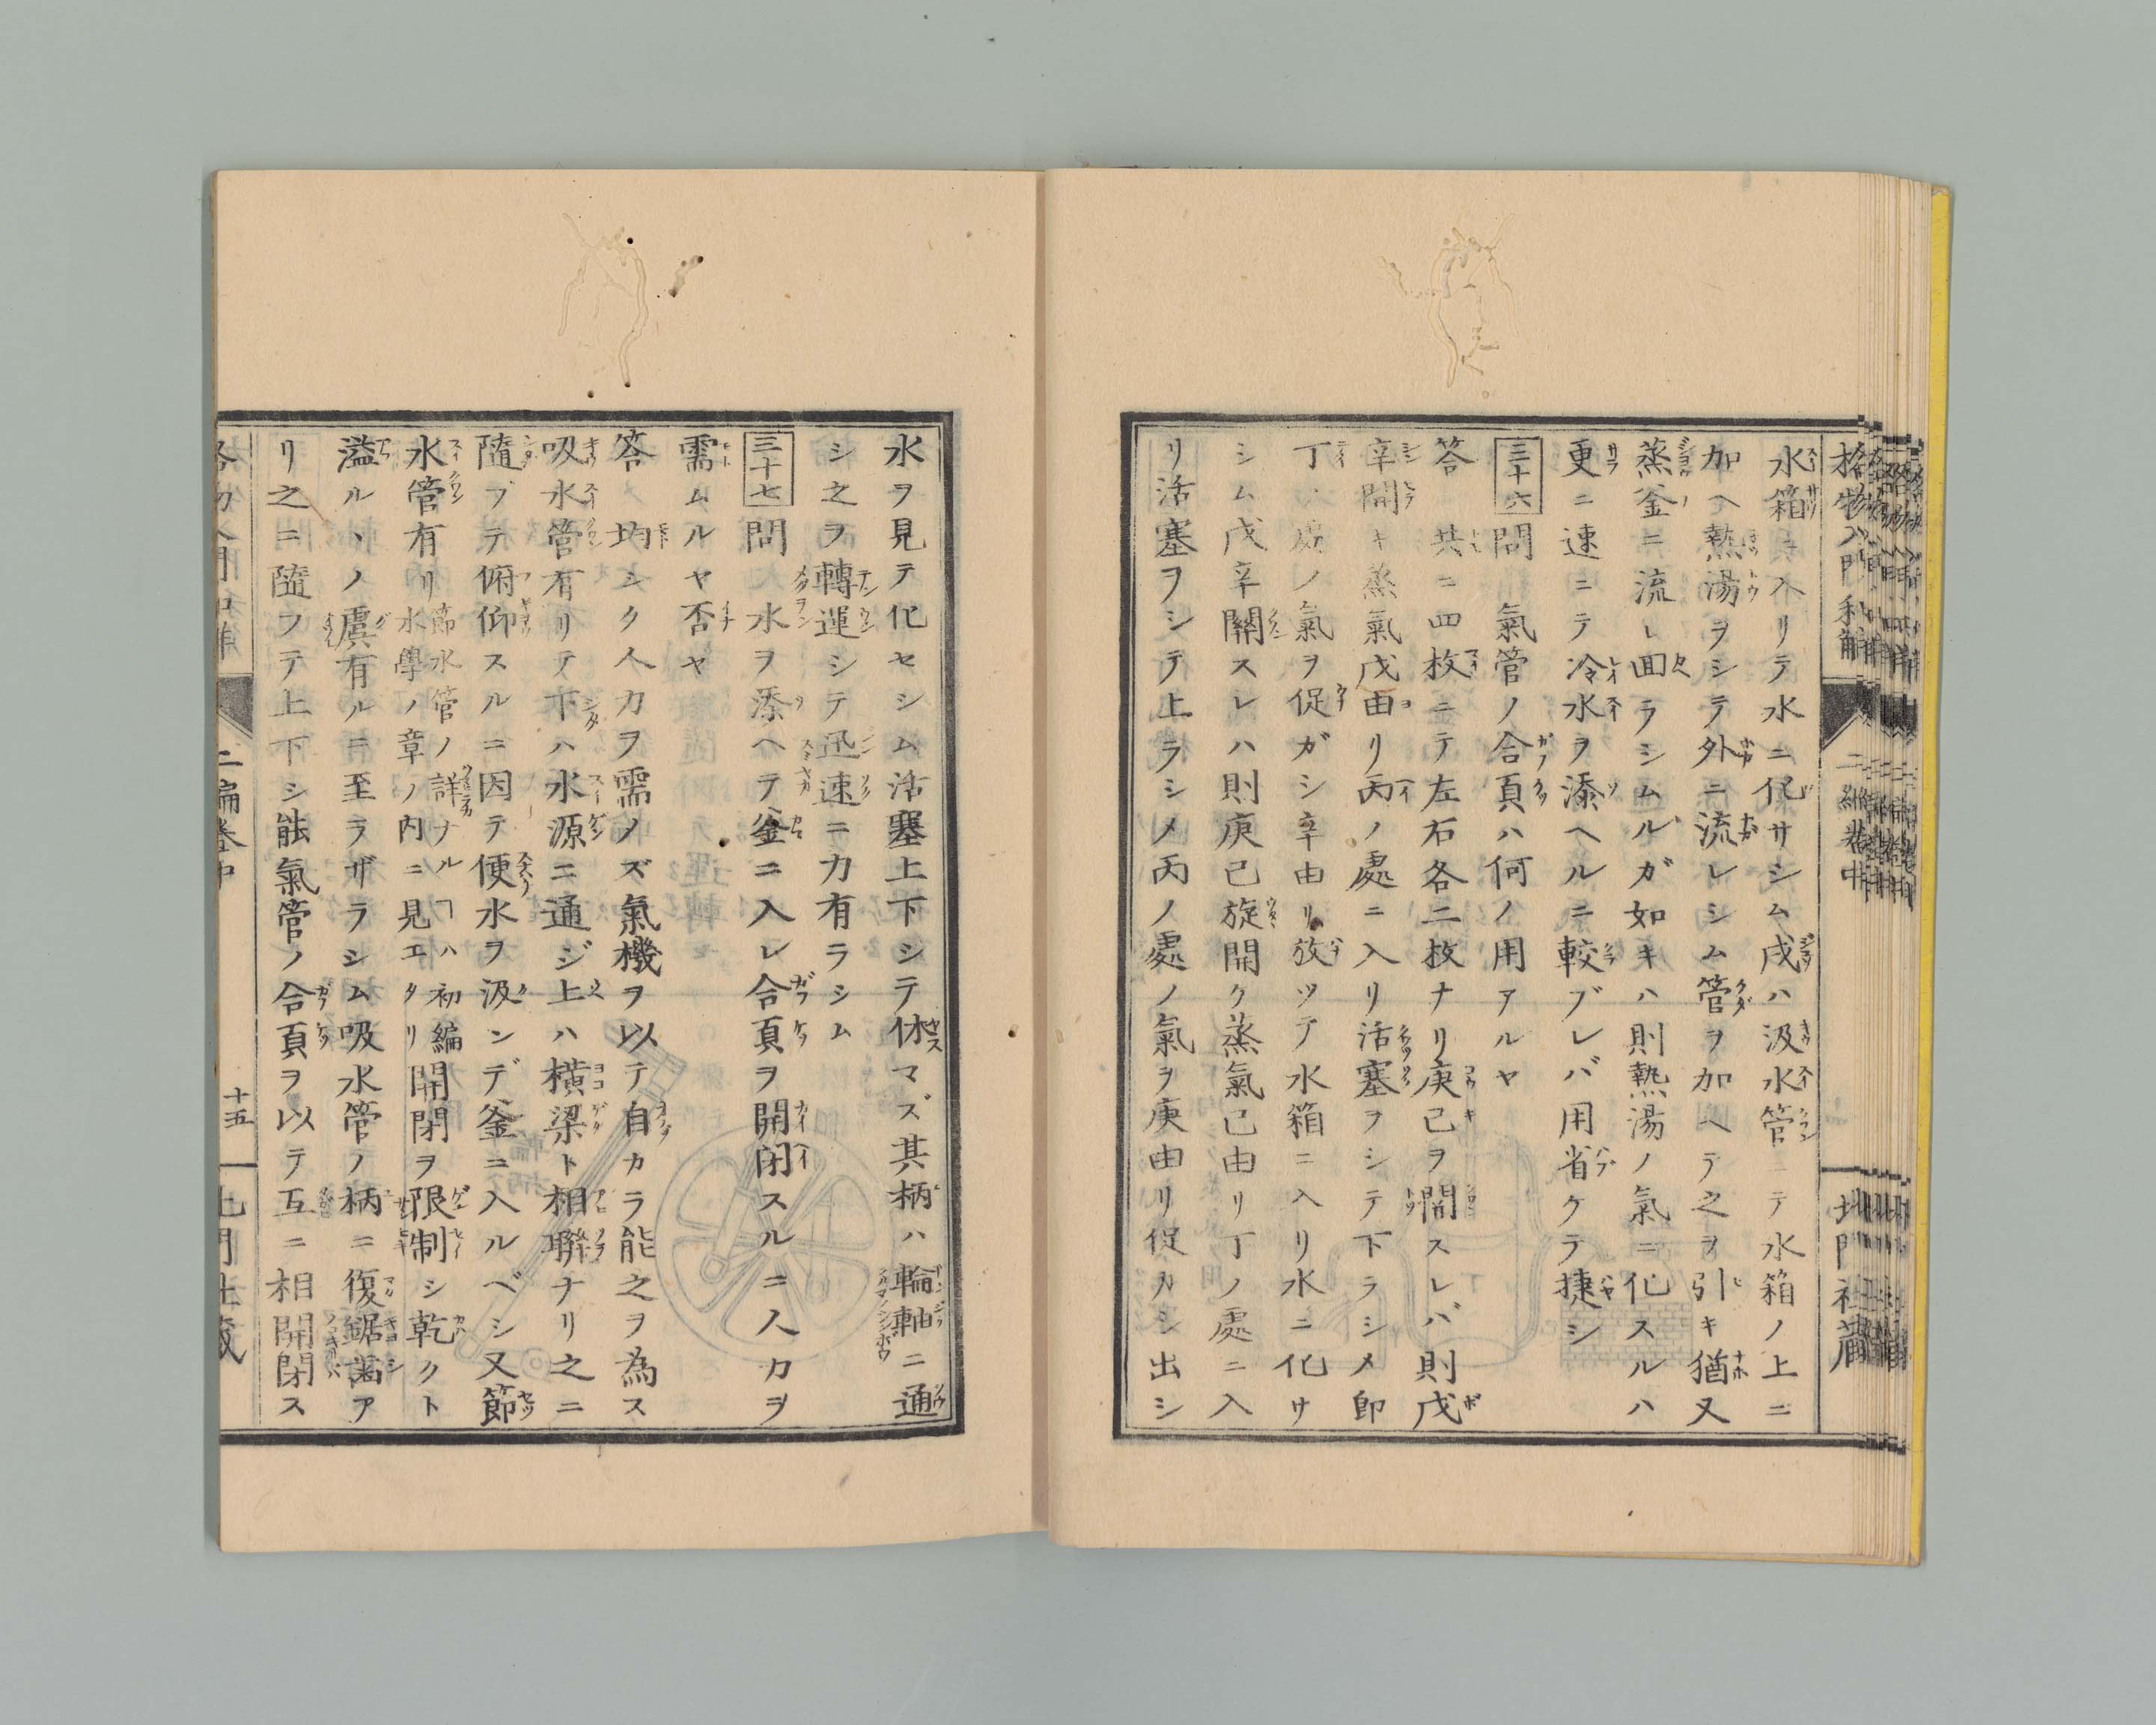 格物入門和解
二編巻中
北門社蔵
水箱ニ入リテ水ニ促サシム戌ハ汲水管ニテ水箱ノ上ニ
加ヘ熱湯ヲシテ外ニ流レシム管ヲ加ヘテ之ヲ引キ猶又
蒸釜ニ流レ回ラシムルガ如キハ則熱湯ノ氣ニ化スルハ
更ニ速ニテ冷水ヲ添ヘルニ較ブレバ用省ケテ捷シ
三十六 問 氣管ノ合頁ハ何ノ用アルヤ
答 共ニ四枚ニテ左右各二枚ナリ庚己ヲ關スレバ則戊
辛開キ蒸氣戊由リ丙ノ處ニ入リ活塞ヲシテ下ラシメ即
丁ノ處ノ氣ヲ促ガシ辛由リ放ツテ水箱ニ入リ水ニ化サ
シム戊辛關スレハ則庚己旋開ク蒸氣己由リ丁ノ處ニ入
リ活塞ヲシテ上ラシメ丙ノ處ノ氣ヲ庚由リ促カシ出シ
水ヲ見テ化セシム活塞上下シテ休マズ其柄ハ輪軸ニ通
シ之ヲ轉運シテ迅速ニ力有ラシム
三十七 問 水ヲ添ヘテ釜ニ入レ合頁ヲ開閉スルニ人力ヲ
需ムルヤ否ヤ
答 均シク人力ヲ需メズ氣機ヲ以テ自カラ能之ヲ為ス
吸水管有リテ下ハ水源ニ通ジ上ハ横梁ト相聯ナリ之ニ
隨ッテ俯仰スルニ因テ便水ヲ汲ンデ釜ニ入ルベシ又節
水管有リ節水管ノ詳ナルヿハ初編水學ノ章ノ内ニ見エタリ開閉ヲ限制シ乾クト
溢ルヽノ虞有ルニ至ラザラシム吸水管ノ柄ニ復鋸齒ア
リ之ニ隨フテ上下シ能氣管ノ合頁ヲ以テ互ニ相開閉ス
二編巻中
十五